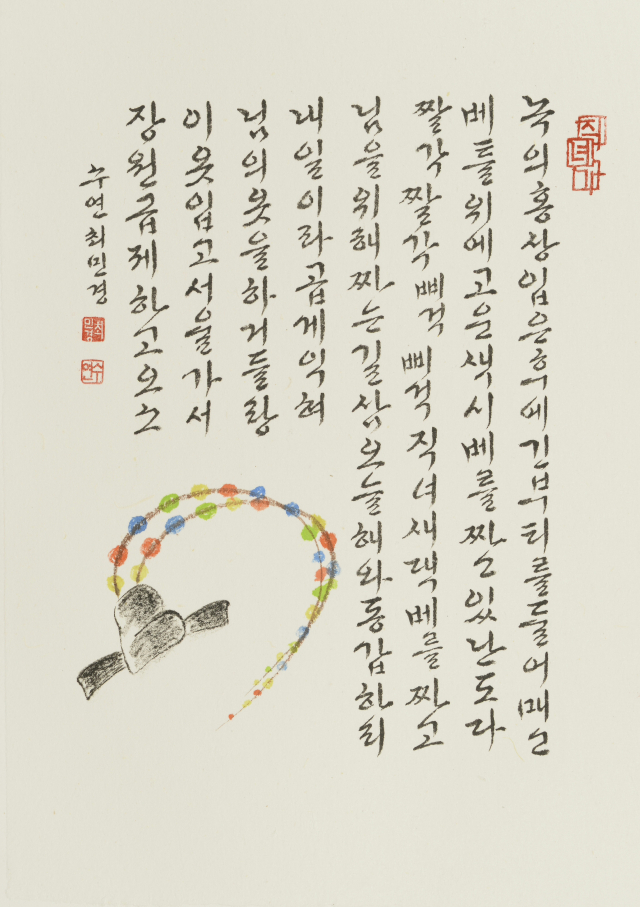 녹의홍상입은허에긴부티를둘어매고
베틀위에고운색시베를짜고있난도다
짤각짤각삐걱삐걱직녀새댁베를짜고
님을위해짜는길삼오늘해와동갑하리
내일이라곱게익혀
님의옷을하거들랑
이옷입고서울가서
장원급제하고오소
수연최민경
최민경
수연